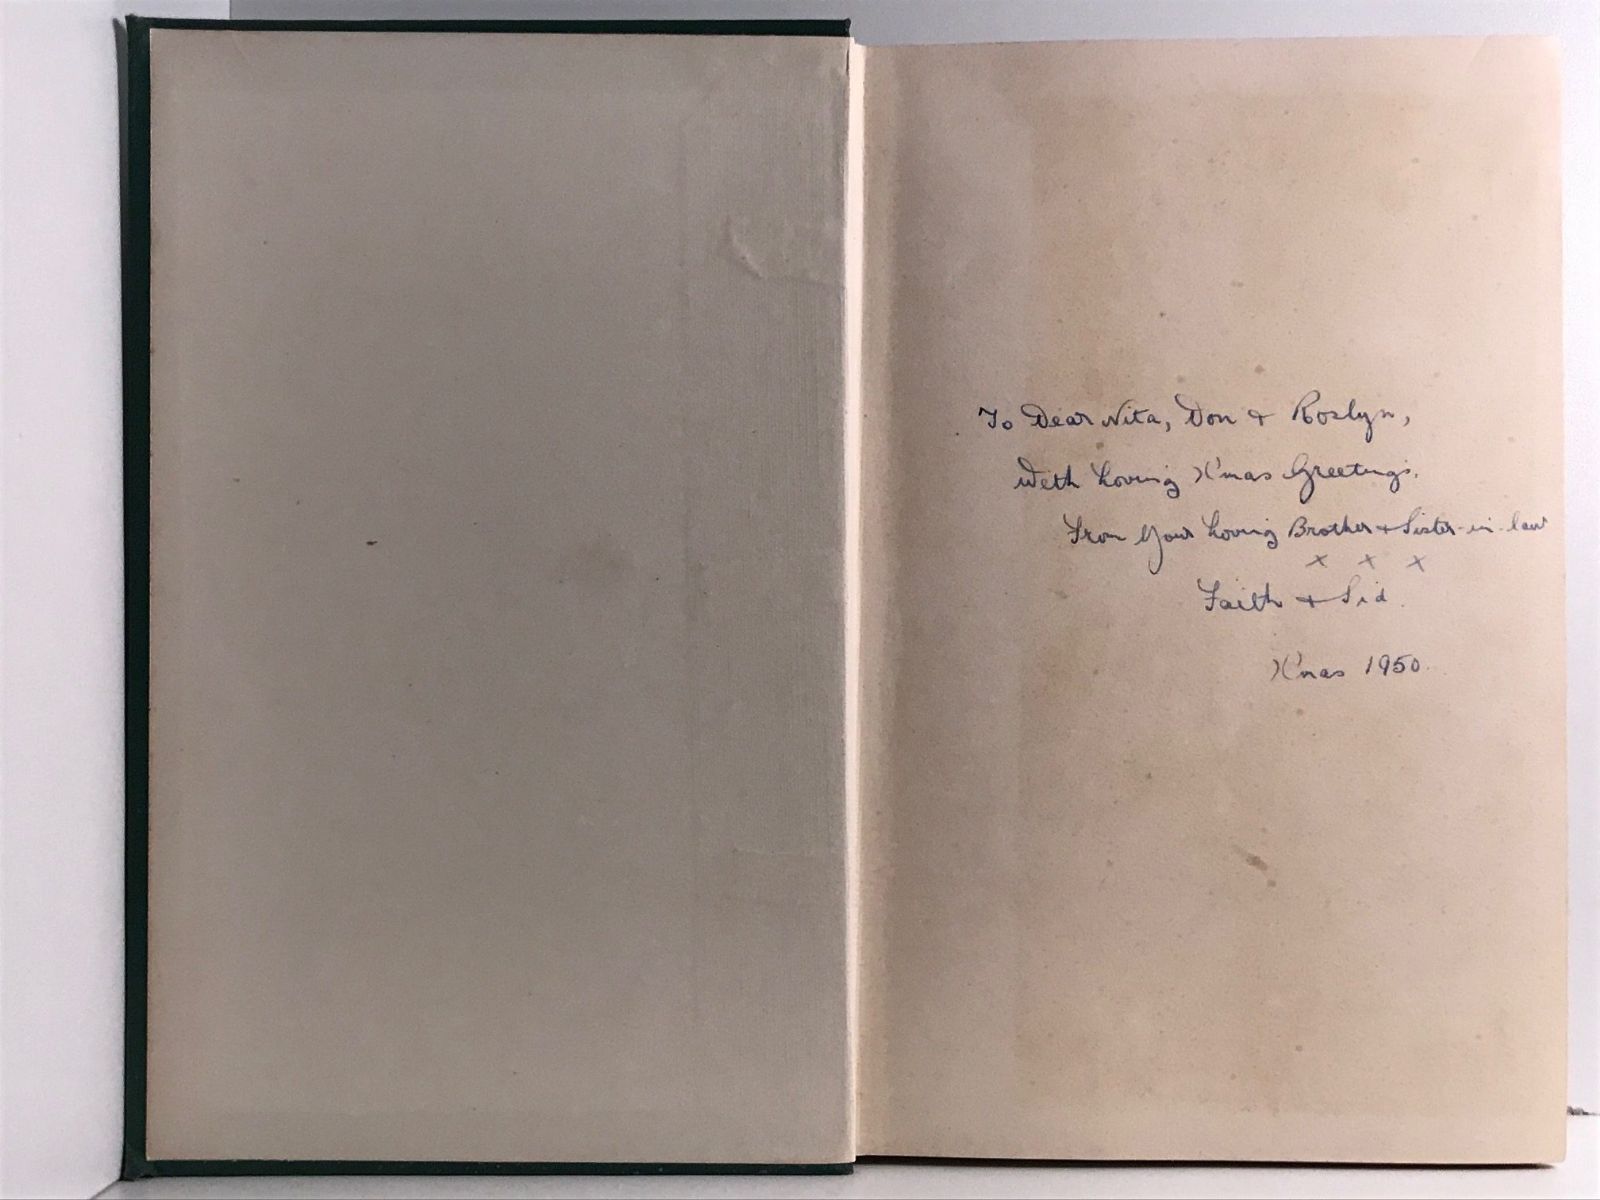 To Dear Nita, Don & Roslyn,
With Loving X'mas Greetings.
From Your Loving Brother & Sister-in-law
x x x
Faith & Sid.
X'mas 1950.